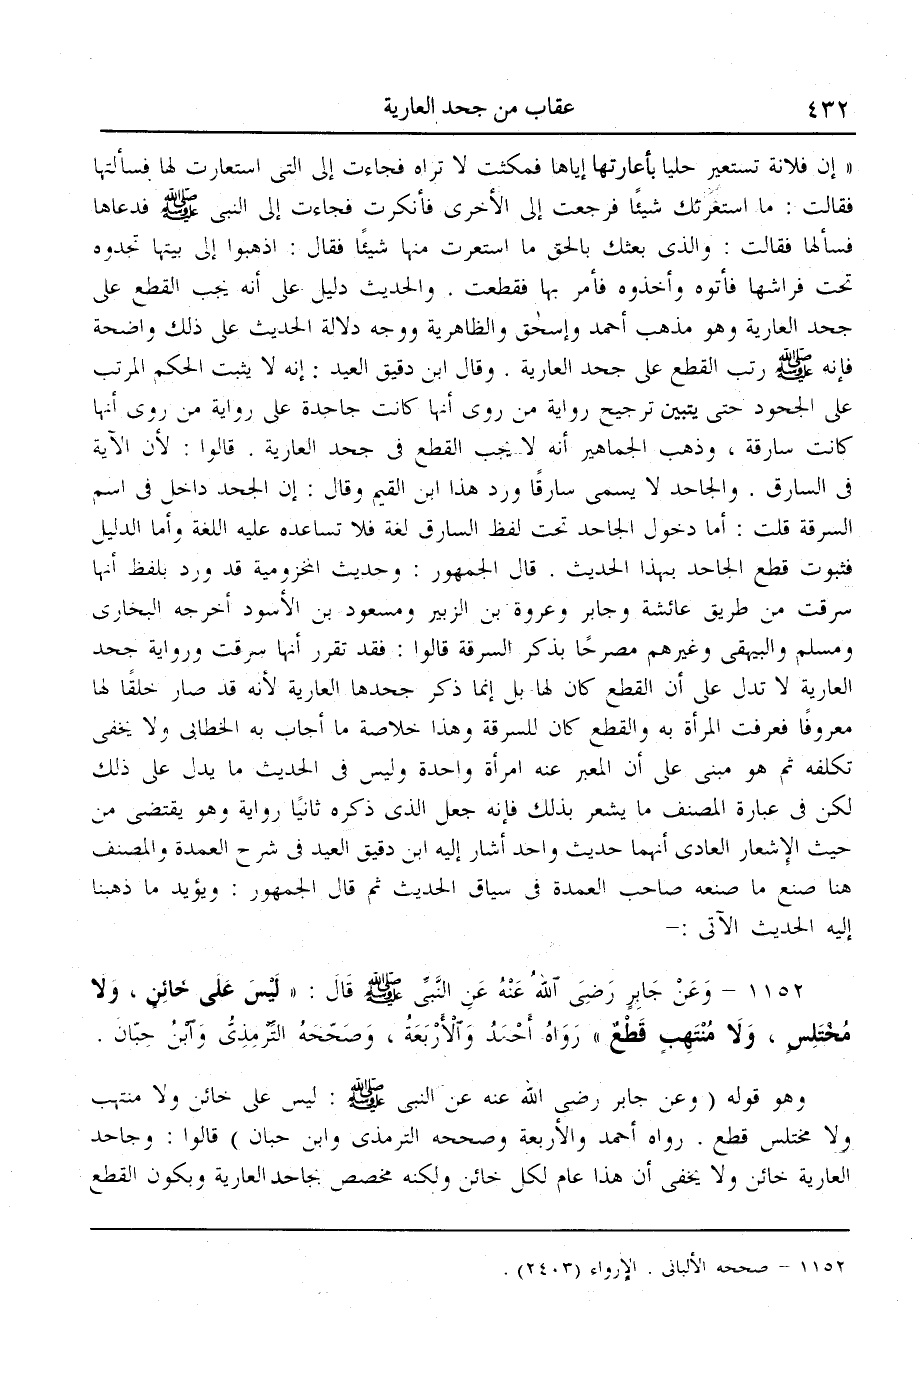 ٤٣٢ عقاب من جحد العارية
« إن فلانة تستعير حليا بأعارتها إياها فمكثت لا تراه فجاءت إلى التى استعارت لها فسألتها
فقالت : ما استعرتك شيئًا فرجعت إلى الأخرى فأنكرت فجاءت إلى النبى ﷺ فدعاها
فسألها فقالت : والذى بعثك بالحق ما استعرت منها شيئًا فقال : اذهبوا إلى بيتها تجدوه
تحت فراشها فأتوه وأخذوه فأمر بها فقطعت . والحديث دليل على أنه يجب القطع على
جحد العارية وهو مذهب أحمد وإسحٰق والظاهرية ووجه دلالة الحديث على ذلك واضحة
فإنه ﷺ رتب القطع على جحد العارية . وقال ابن دقيق العيد : إنه لا يثبت الحكم المرتب
على الجحود حتى يتبين ترجيح رواية من روى أنها كانت جاحدة على رواية من روى أنها
كانت سارقة ، وذهب الجماهير أنه لا يجب القطع فى جحد العارية . قالوا : لأن الآية
فى السارق . والجاحد لا يسمى سارقًا ورد هذا ابن القيم وقال : إن الجحد داخل فى اسم
السرقة قلت : أما دخول الجاحد تحت لفظ السارق لغة فلا تساعده عليه اللغة وأما الدليل
فثبوت قطع الجاحد بهذا الحديث . قال الجمهور : وحديث المخزومية قد ورد بلفظ أنها
سرقت من طريق عائشة وجابر وعروة بن الزبير ومسعود بن الأسود أخرجه البخارى
ومسلم والبيهقى وغيرهم مصرحًا بذكر السرقة قالوا : فقد تقرر أنها سرقت ورواية جحد
العارية لا تدل على أن القطع كان لها بل إنما ذكر جحدها العارية لأنه قد صار خلقًا لها
معروفًا فعرفت المرأة به والقطع كان للسرقة وهذا خلاصة ما أجاب به الخطابى ولا يخفى
تكلفه ثم هو مبنى على أن المعبر عنه امرأة واحدة وليس فى الحديث ما يدل على ذلك
لكن فى عبارة المصنف ما يشعر بذلك فإنه جعل الذى ذكره ثانيًا رواية وهو يقتضى من
حيث الإشعار العادى أنهما حديث واحد أشار إليه ابن دقيق العيد فى شرح العمدة والمصنف
هنا صنع ما صنعه صاحب العمدة فى سياق الحديث ثم قال الجمهور : ويؤيد ما ذهبنا
إليه الحديث الآتى :–
١١٥٢ – وَعَنْ جَابِرٍ رَضِىَ ٱللهُ عَنْهُ عَنِ النَّبِىِّ ﷺ قَالَ : « لَيْسَ عَلَى خَائِنٍ ، وَلَا
مُخْتَلِسٍ ، وَلَا مُنْتَهِبٍ قَطْعٌ » رَوَاهُ أَحْمَدُ وَٱلْأَرْبَعَةُ ، وَصَحَّحَهُ التِّرْمِذِىُّ وَٱبْنُ حِبَّانَ .
وهو قوله ( وعن جابر رضى الله عنه عن النبى ﷺ : ليس على خائن ولا منتهب
ولا مختلس قطع . رواه أحمد والأربعة وصححه الترمذى وابن حبان ) قالوا : وجاحد
العارية خائن ولا يخفى أن هذا عام لكل خائن ولكنه مخصص بجاحد العارية ويكون القطع
١١٥٢ – صححه الألبانى . الإرواء (٢٤٠٣) .